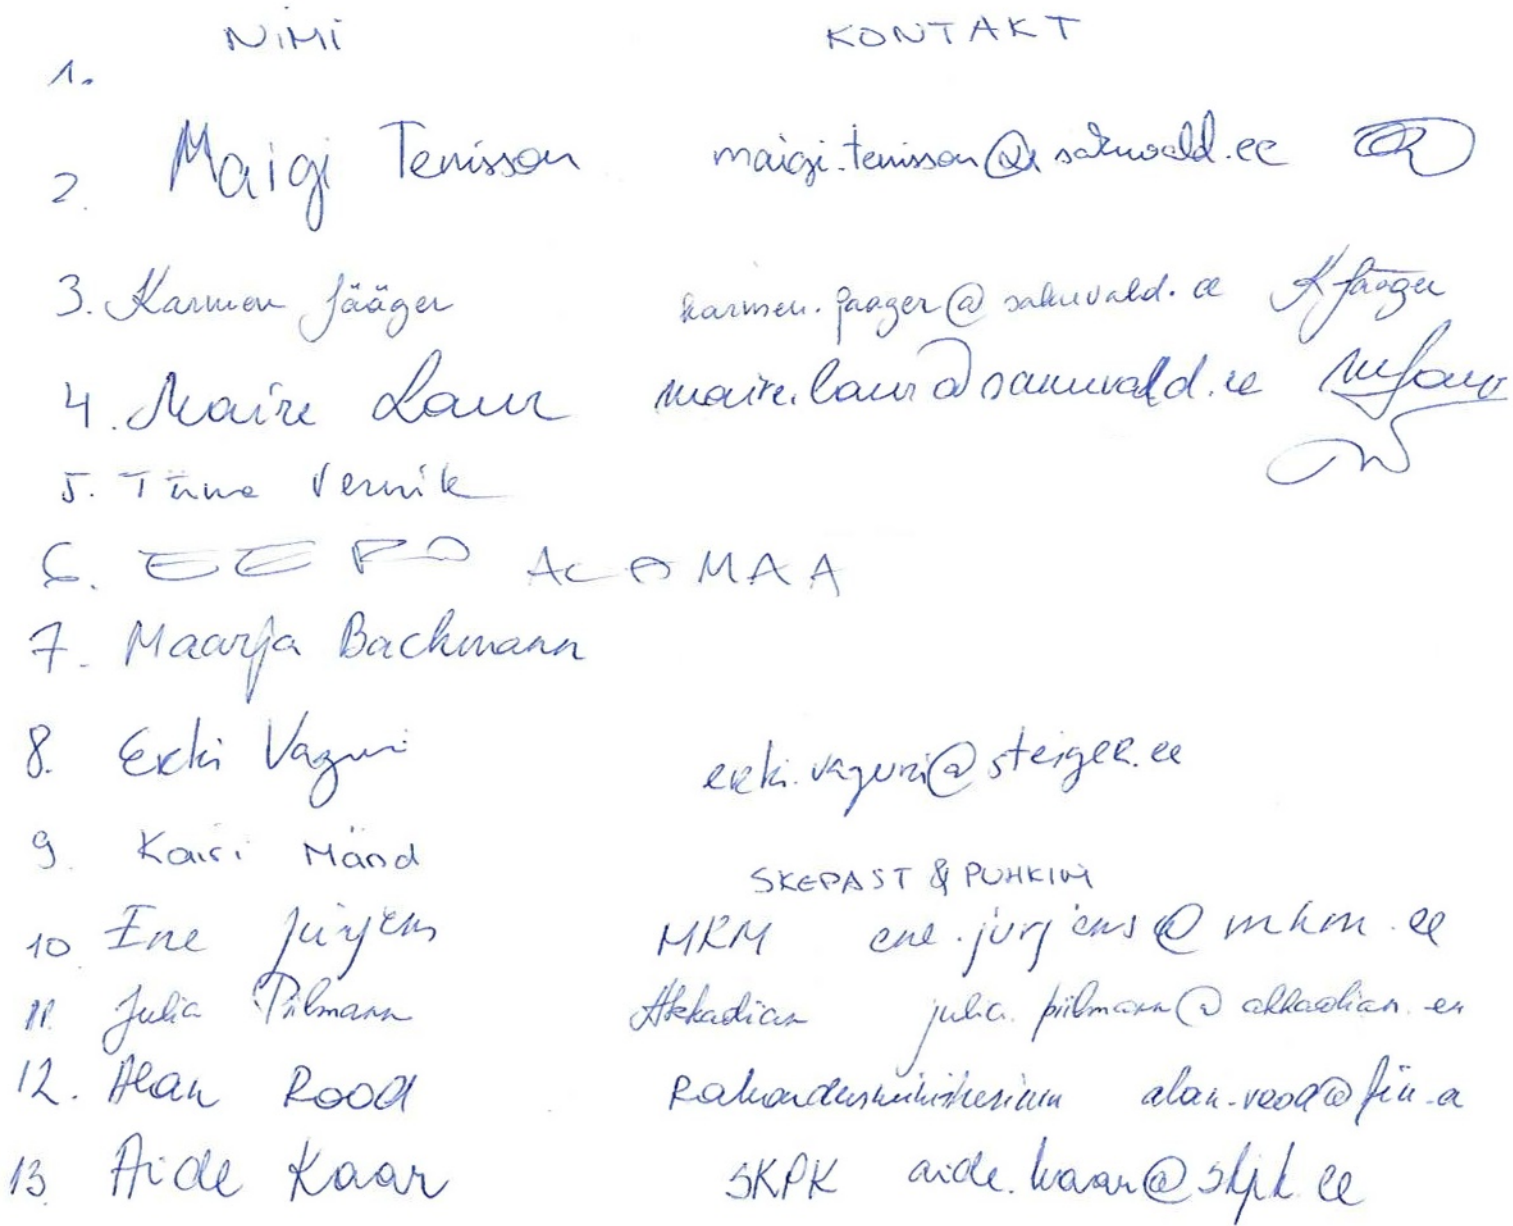 NiMi KONTAKT
1.
2. Maigi Tenisson maigi.tenisson@sakuvald.ee
3. Karmen Jääger karmen.jaager@sakuvald.ee KJääger
4. Maire Laur maire.laur@sakuvald.ee
5. Tiina Vernik
6. EERO ALAMAA
7. Maarja Bachmann
8. Erki Vaguri erki.vaguri@steiger.ee
9. Kairi Mänd
SKEPAST & PUHKIM
10 Ene Jürjens MKM ene.jurjens@mkm.ee
11. Julia Piilmann Akkadian julia.piilmann@akkadian.ee
12. Alan Rood Rahandusministeerium alan.rood@fin.ee
13. Aide Kaar SKPK aide.kaar@skpk.ee